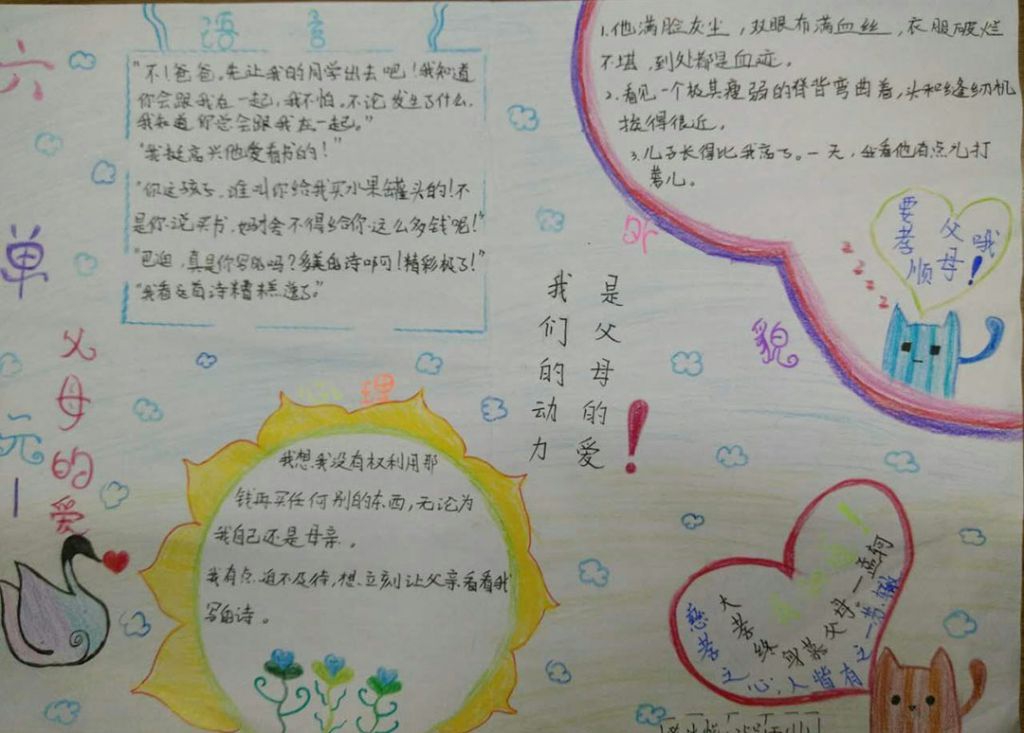 六
单
元
父母的爱
语言
"不！爸爸，先让我的同学出去吧！我知道
你会跟我在一起，我不怕。不论发生了什么，
我知道你总会跟我在一起。"
"我挺高兴他爱看书的！"
"你这孩子，谁叫你给我买水果罐头的！不
是你说买书，妈才舍不得给你这么多钱呢！"
"巴迪，真是你写的吗？多美的诗啊！精彩极了！"
"我看这首诗糟糕透了。"
1.他满脸灰尘，双眼布满血丝，衣服破烂
不堪，到处都是血迹。
2.看见一个极其瘦弱的脊背弯曲着，头和缝纫机
挨得很近。
3.儿子长得比我高了。一天，
打
蔫儿。
外
貌
要孝顺
父母
哦！
z z z z z
我们的动力
是父母的爱！
理
我想我没有权利用那
钱再买任何别的东西，无论为
我自己还是母亲。
我有点迫不及待，想立刻让父亲看看我
写的诗。
大孝终身慕父母。—孟轲
慈孝之心，人皆有之—苏辙